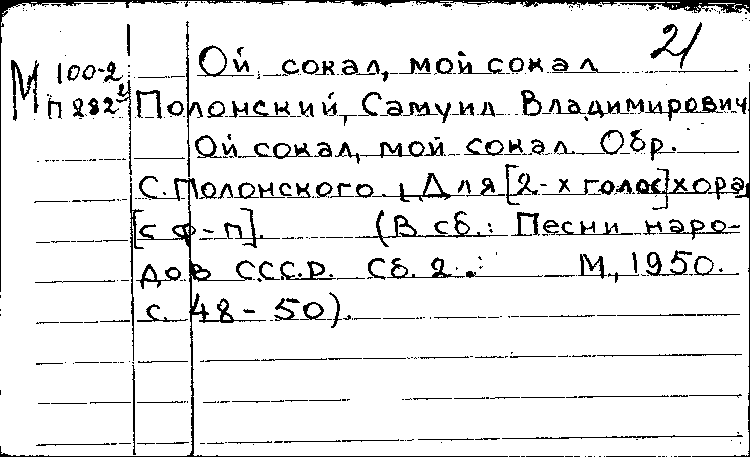 21
М 100-2 Ой, сокал, мой сокал
П 282² Полонский, Самуил Владимирович
Ой сокал, мой сокал. Обр.
С. Полонского. Для [2-х голос] хора,
[с ф-п]. (В сб.: Песни наро-
дов С.С.С.Р. Сб. 2.: М., 1950.
с. 48-50).